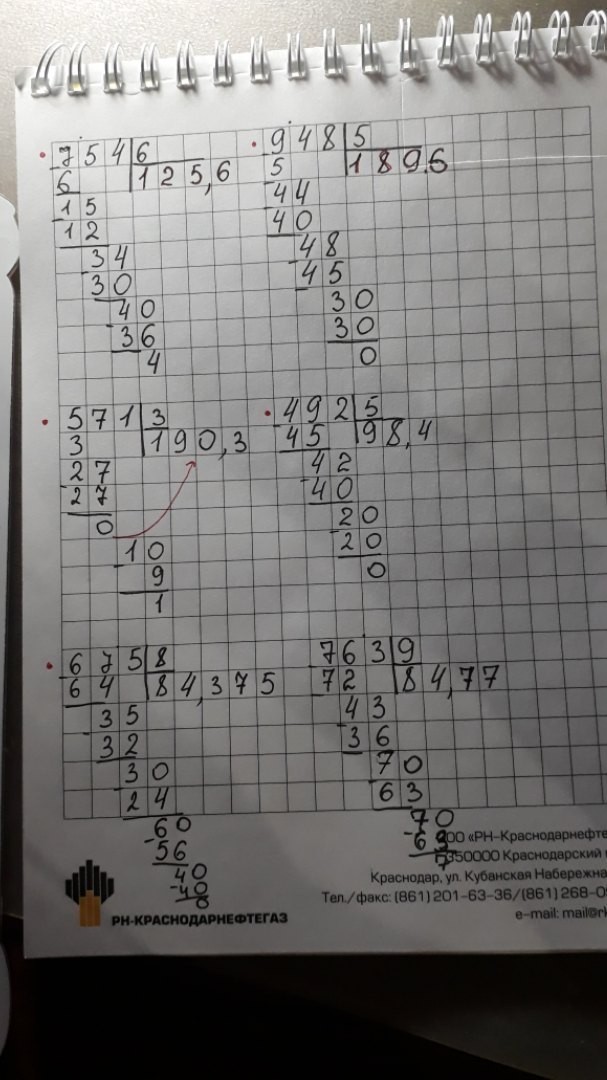 754 6 948 5
6 125,6 5 189.6
15 44
12 40
34 48
30 45
40 30
36 30
4 0
571 3 492 5
3 190,3 45 98,4
27 42
27 40
0 20
10 20
9 0
1
675 8 763 9
64 84,375 72 84,77
35 43
32 36
30 70
24 63
60 70
56 63
40 7
40
0
ООО «РН-Краснодарнефте
350000 Краснодарский
Краснодар, ул. Кубанская Набережна
Тел./факс: (861) 201-63-36/(861) 268-0
e-mail: mail@r
РН-КРАСНОДАРНЕФТЕГАЗ